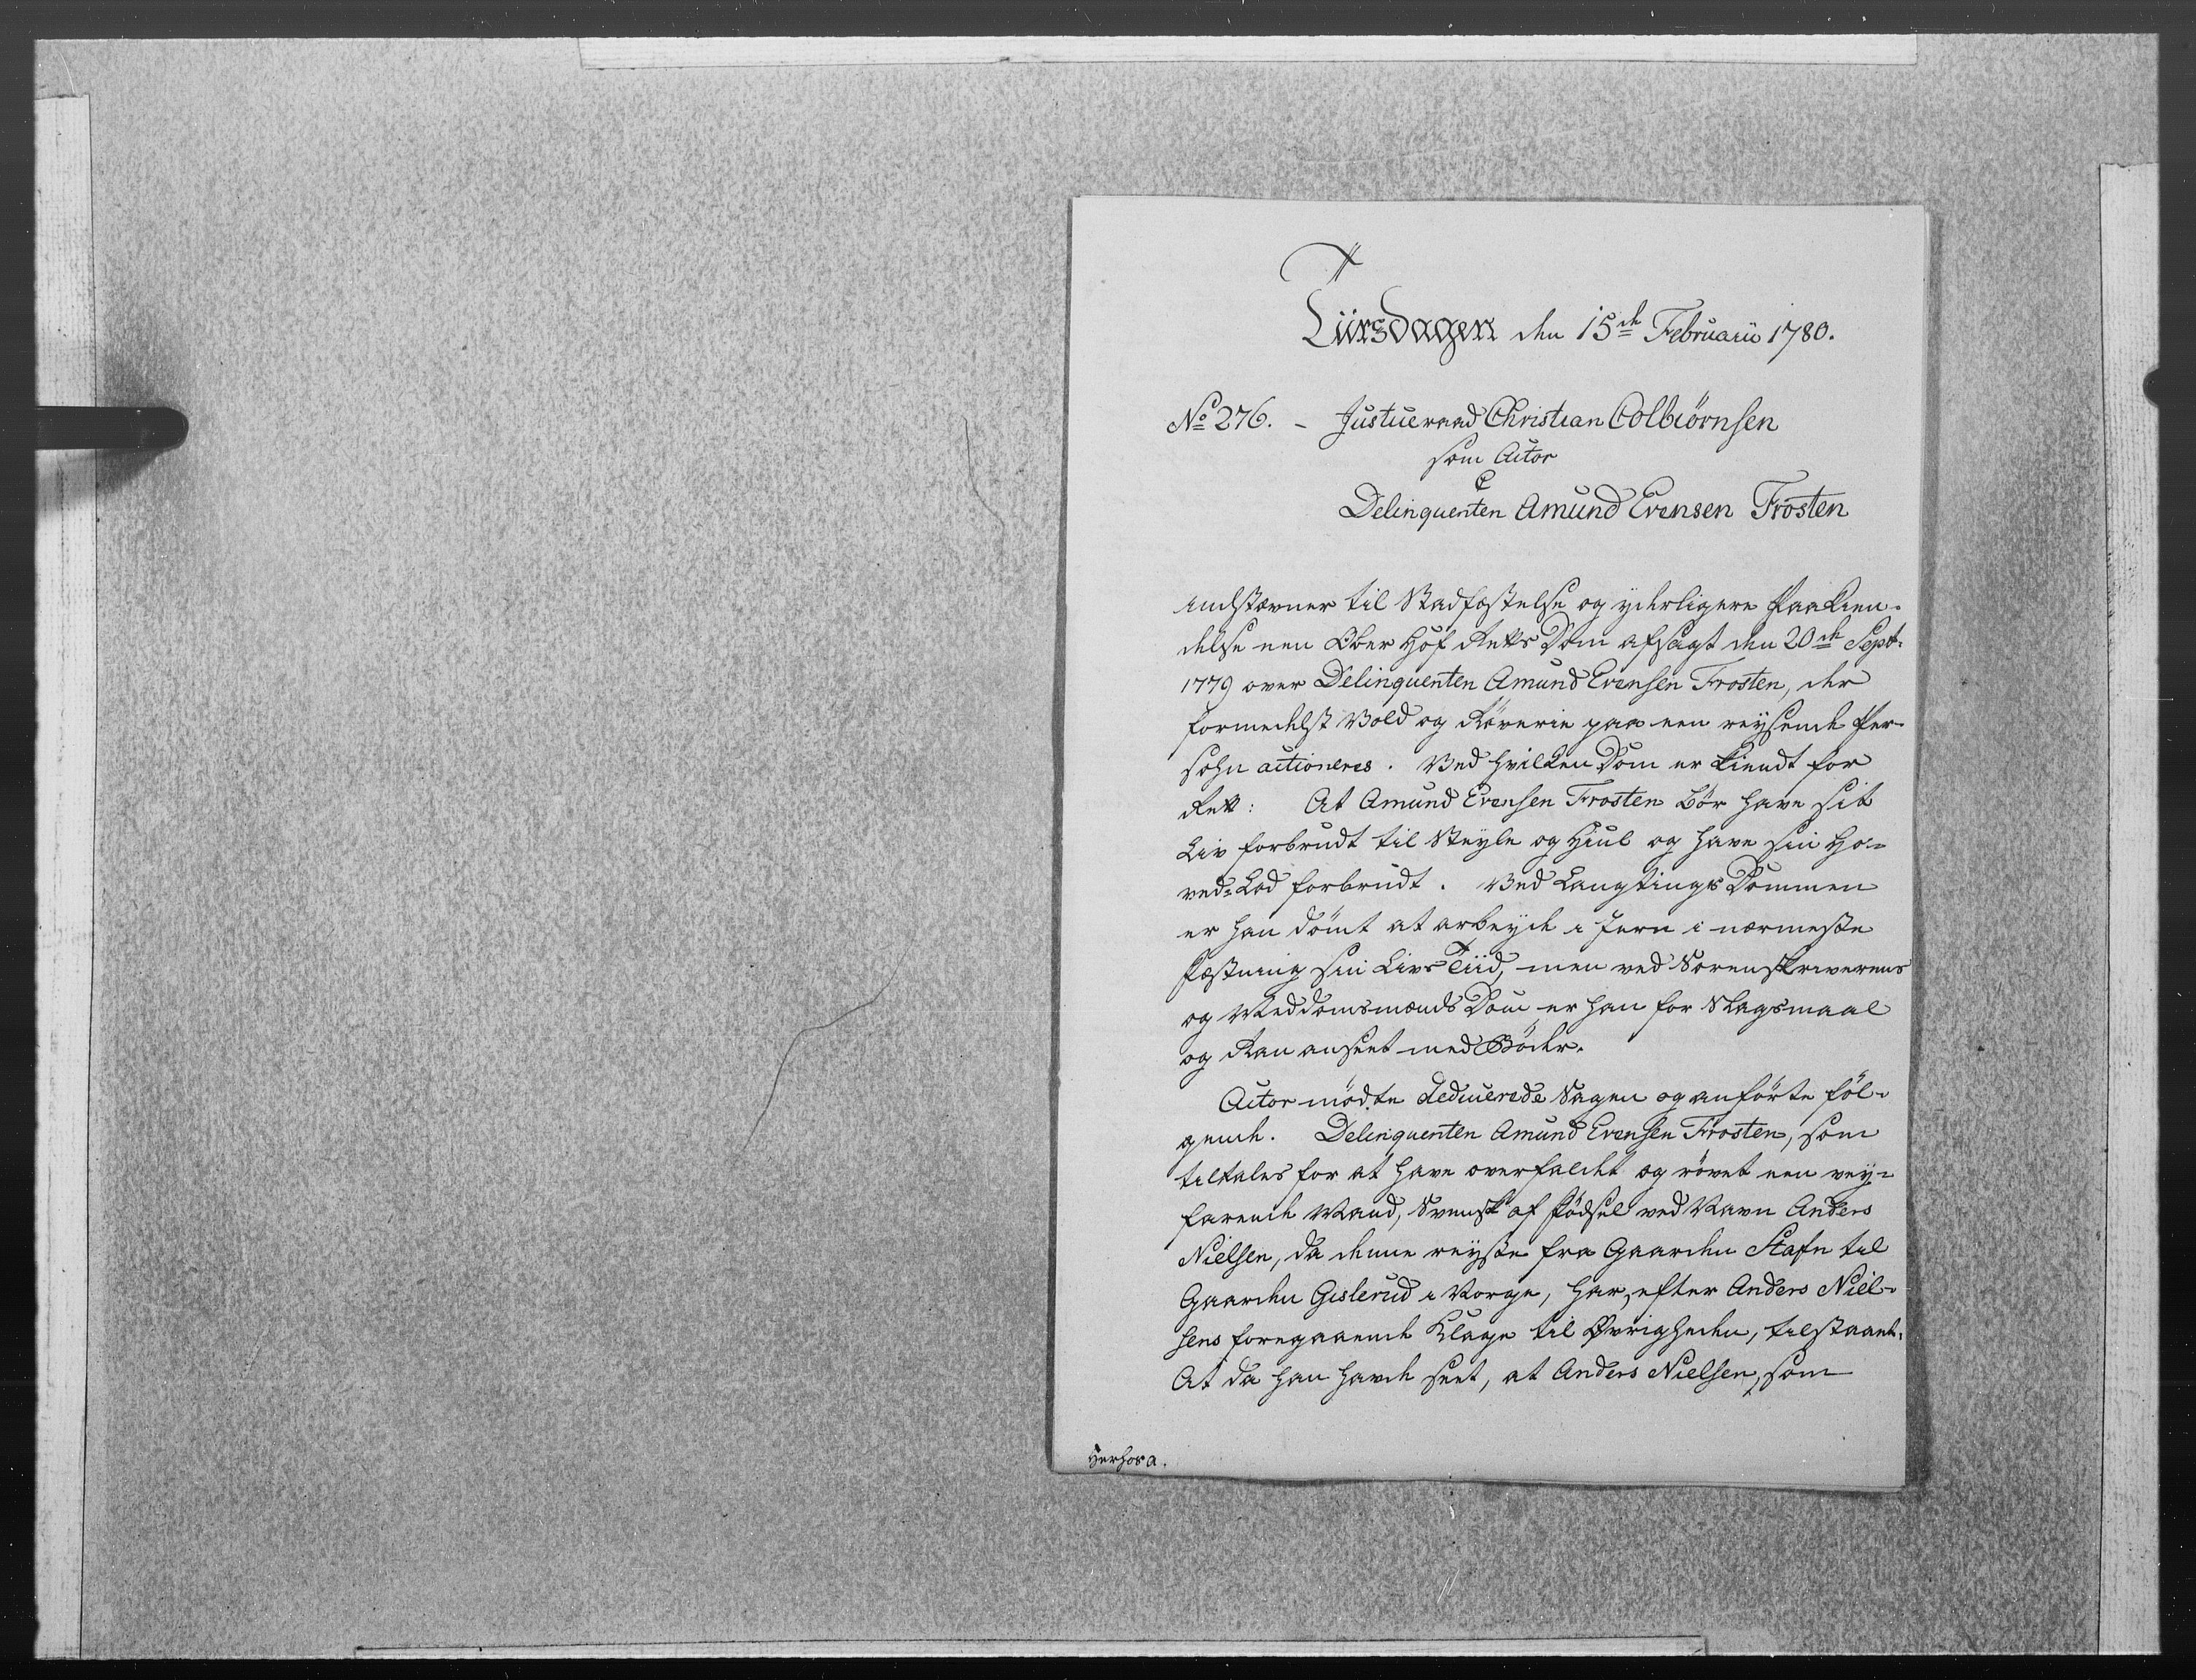 Tiirsdagen den 15de Februarii 1780.
No 276. - Justiceraad Christian Colbiørnsen
som Actor
C
Delinquenten Amund Evensen Frosten
indstævner til Stadfæstelse og yderligere Paakien-
delse een Ober Hof Retts Dom afsagt den 20de Sept.
1779 over Delinquenten Amund Evensen Frosten, der
formedelst Vold og Røverie paa een reysende Per-
sohn actioneres. Ved hvilken Dom er kiendt for
Rett: At Amund Evensen Frosten bør have sit
Liv forbrudt til Steyle og Hiul og have sin Ho-
ved-Lod forbrudt. Ved Laugtings Dommen
er han dømt at arbeyde i Jern i nærmeste
Fæstning sin Livs Tiid, men ved Sorenskriverens
og Meddomsmænds Dom er han for Slagsmaal
og Ran anseet med Bøder.
Actor mødte deducerede Sagen og anførte føl-
gende. Delinquenten Amund Evensen Frosten, som
tiltales for at have overfaldet og røvet een vey-
farende Mand, Svensk af Fødsel ved Navn Anders
Nielsen, da denne reyste fra Gaarden Stafn til
Gaarden Gislerud i Norge, har, efter Anders Niel-
sens foregaaende Klage til Øvrigheden, tilstaaet.
At da han havde seet, at Anders Nielsen, som
Herhos a.